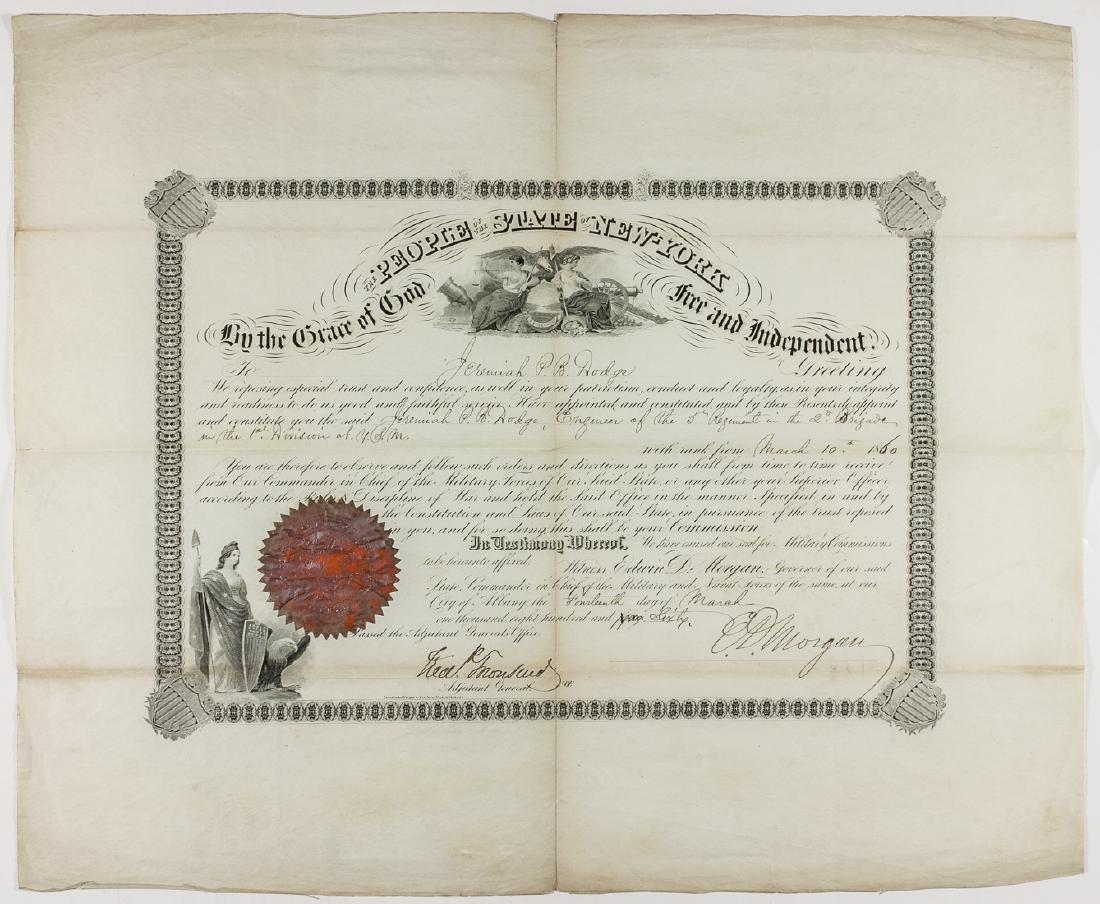 THE PEOPLE OF THE STATE OF NEW-YORK
By the Grace of God Free and Independent.
To Jeremiah P. B. Dodge Greeting
We reposing especial trust and confidence, as well in your patriotism, conduct and loyalty, as in your integrity
and readiness to do us good and faithful service, Have appointed and constituted, and by these Presents, do appoint
and constitute you the said Jeremiah P. B. Dodge, Engineer of the 5th Regiment in the 2d Brigade
in the 1st Division N.Y.S.M.
with rank from March 10th 1860
You are therefore to observe and follow such orders and directions as you shall from time to time receive
from Our Commander in Chief of the Military Forces of Our Said State, or any other your Superior Officer
according to the Discipline of War and hold the Said Office in the manner Specified, in and by
the Constitution and Laws of Our said State, in pursuance of the trust reposed
in you, and for so doing this shall be your Commission.
In Testimony Whereof, We have caused our seal for Military Commissions
to be hereunto affixed. Witness Edwin D. Morgan, Governor of our said
State, Commander in Chief of the Military and Naval Forces of the same, at our
City of Albany, the Fourteenth day of March
one thousand eight hundred and Sixty.
Passed the Adjutant General's Office.
E. D. Morgan
Fred. Townsend
Adjutant General.